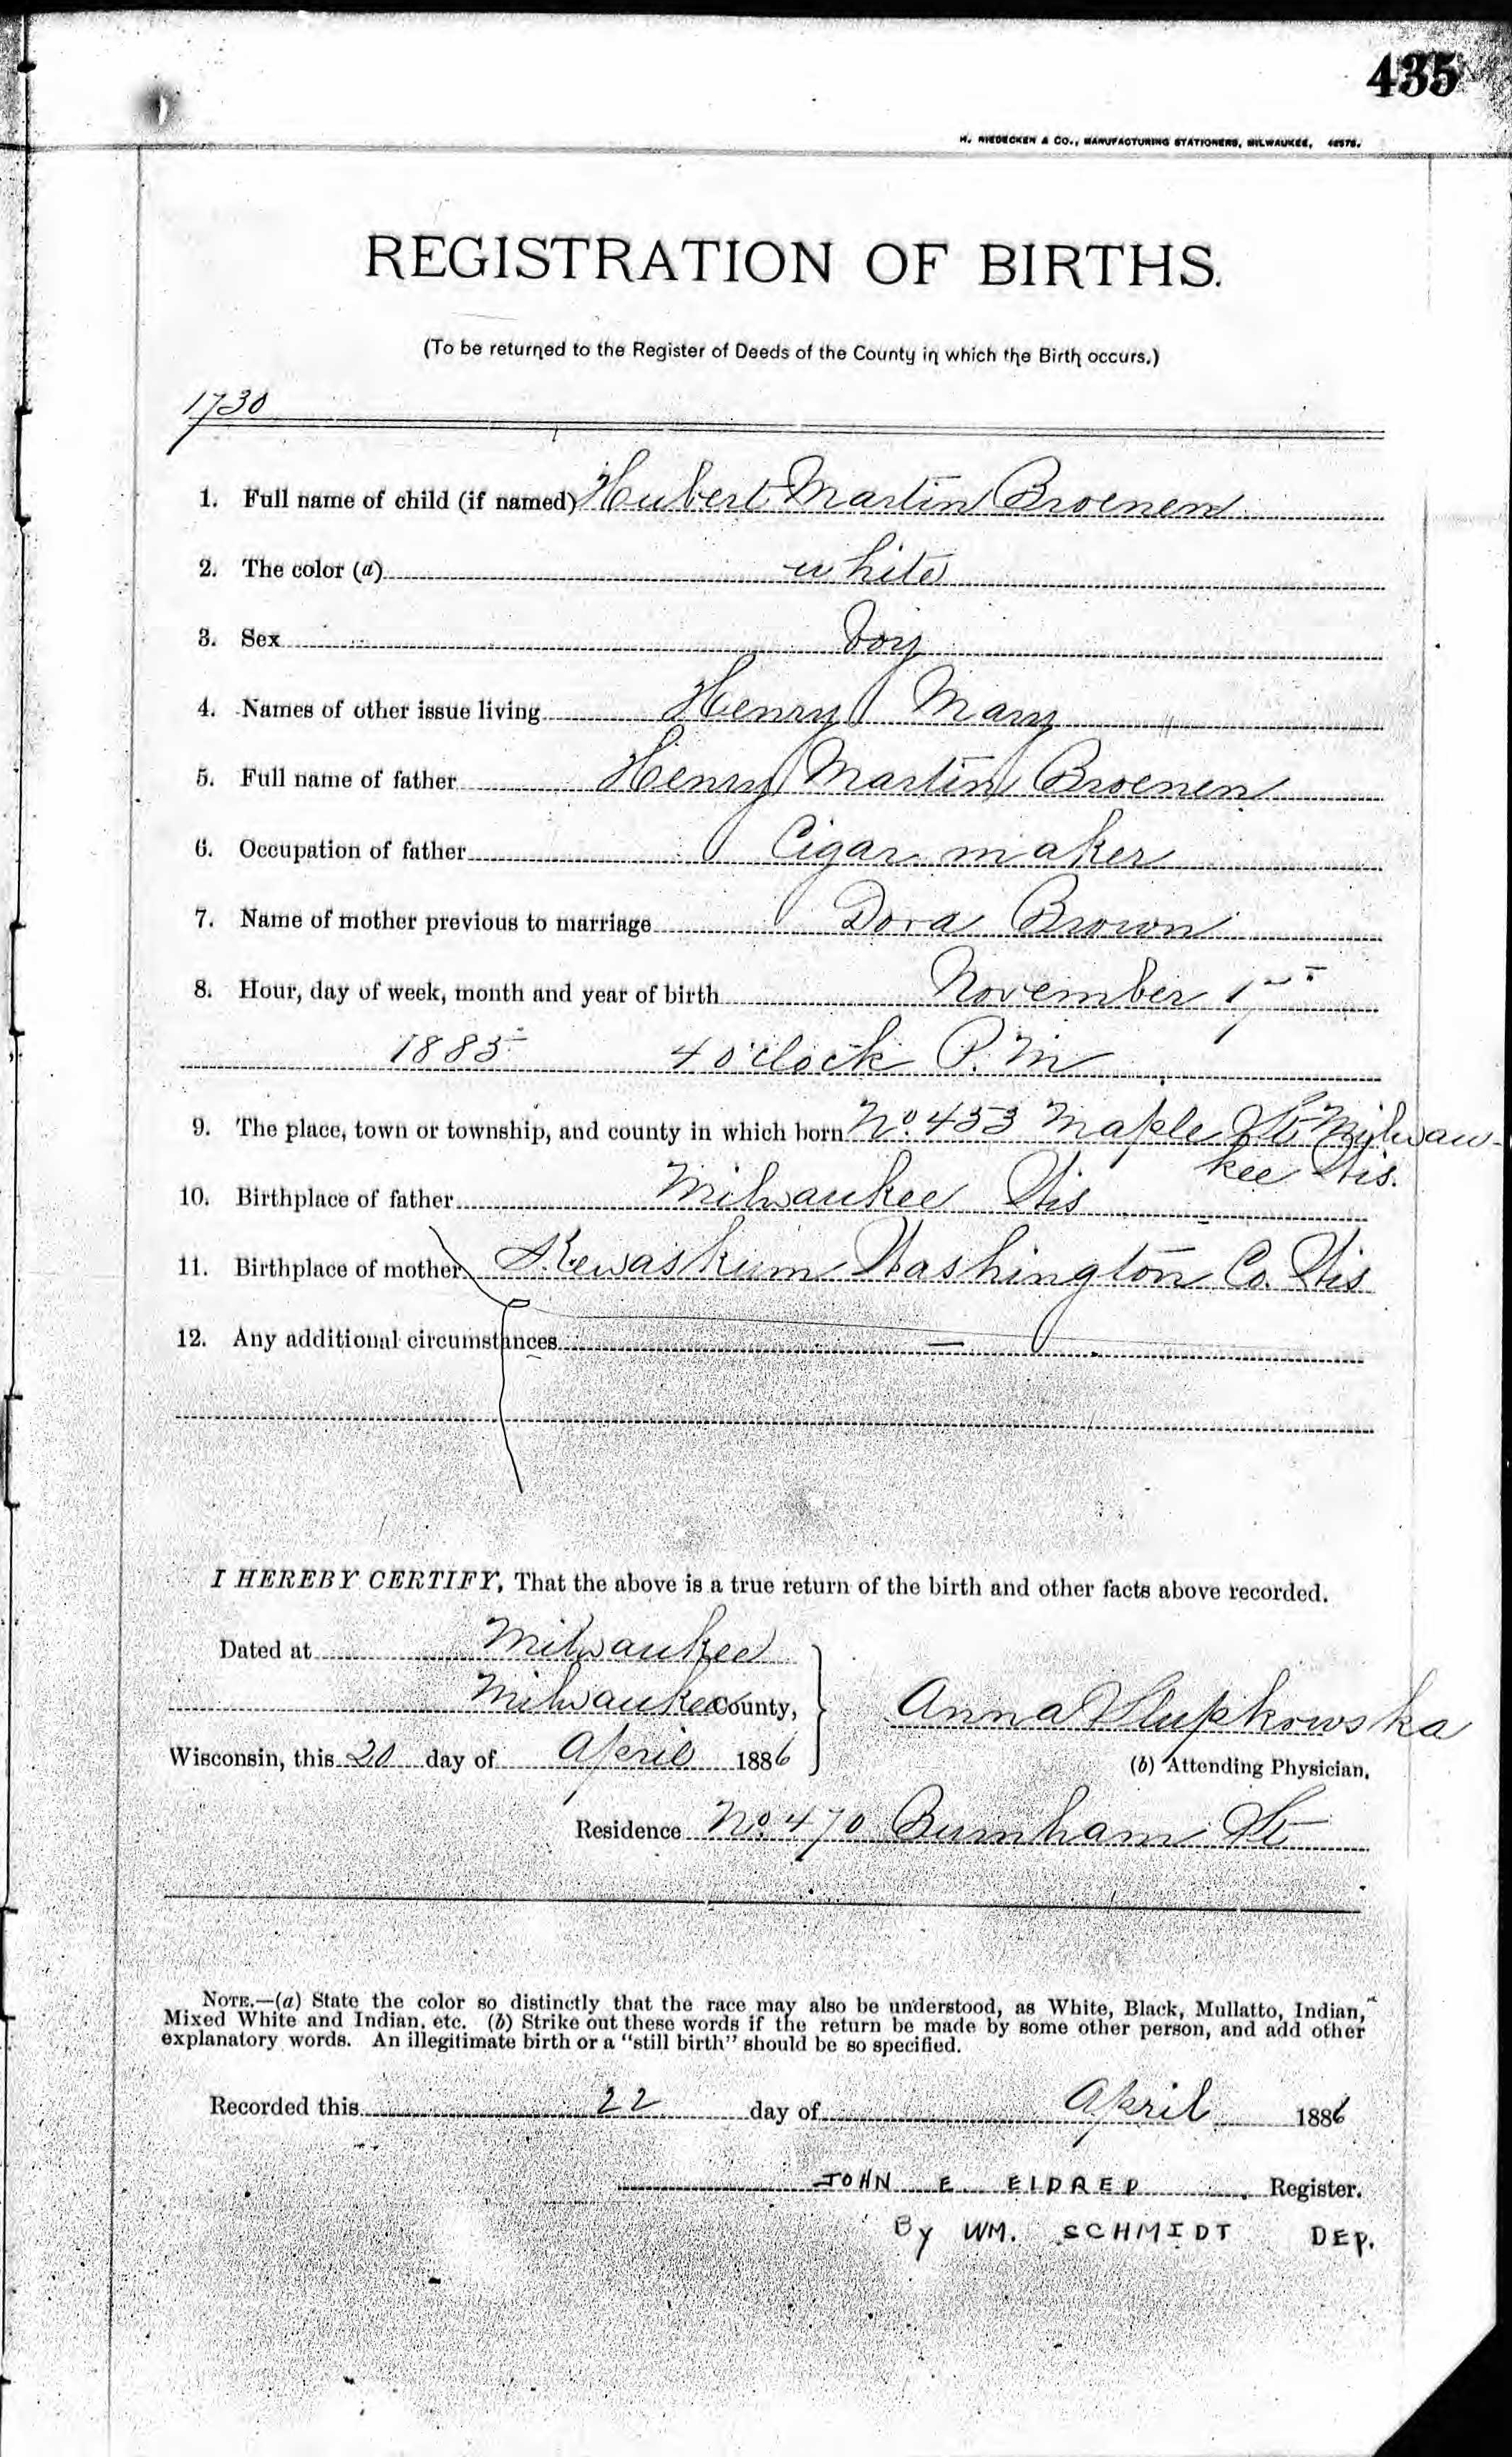 435
H. NIEDECKEN & CO., MANUFACTURING STATIONERS, MILWAUKEE,
REGISTRATION OF BIRTHS.
(To be returned to the Register of Deeds of the County in which the Birth occurs.)
1730
1. Full name of child (if named) Hubert Martin Broenen
2. The color (a) white
3. Sex boy
4. Names of other issue living Henry Mary
5. Full name of father Henry Martin Broenen
6. Occupation of father Cigar maker
7. Name of mother previous to marriage Dora Brown
8. Hour, day of week, month and year of birth November
1885 4 o'clock P.M
9. The place, town or township, and county in which born No. 453 Maple St Milwau-
kee Wis.
10. Birthplace of father Milwaukee Wis
11. Birthplace of mother Kewaskum Washington Co. Wis
12. Any additional circumstances —
I HEREBY CERTIFY, That the above is a true return of the birth and other facts above recorded.
Dated at Milwaukee
Milwaukee County,
Wisconsin, this 20 day of April 1886
Anna Slupkowska
(b) Attending Physician.
Residence No. 470 Burnham St
NOTE.—(a) State the color so distinctly that the race may also be understood, as White, Black, Mullatto, Indian,
Mixed White and Indian, etc. (b) Strike out these words if the return be made by some other person, and add other
explanatory words. An illegitimate birth or a "still birth" should be so specified.
Recorded this 22 day of April 1886
JOHN E ELDRED Register.
By WM. SCHMIDT DEP.